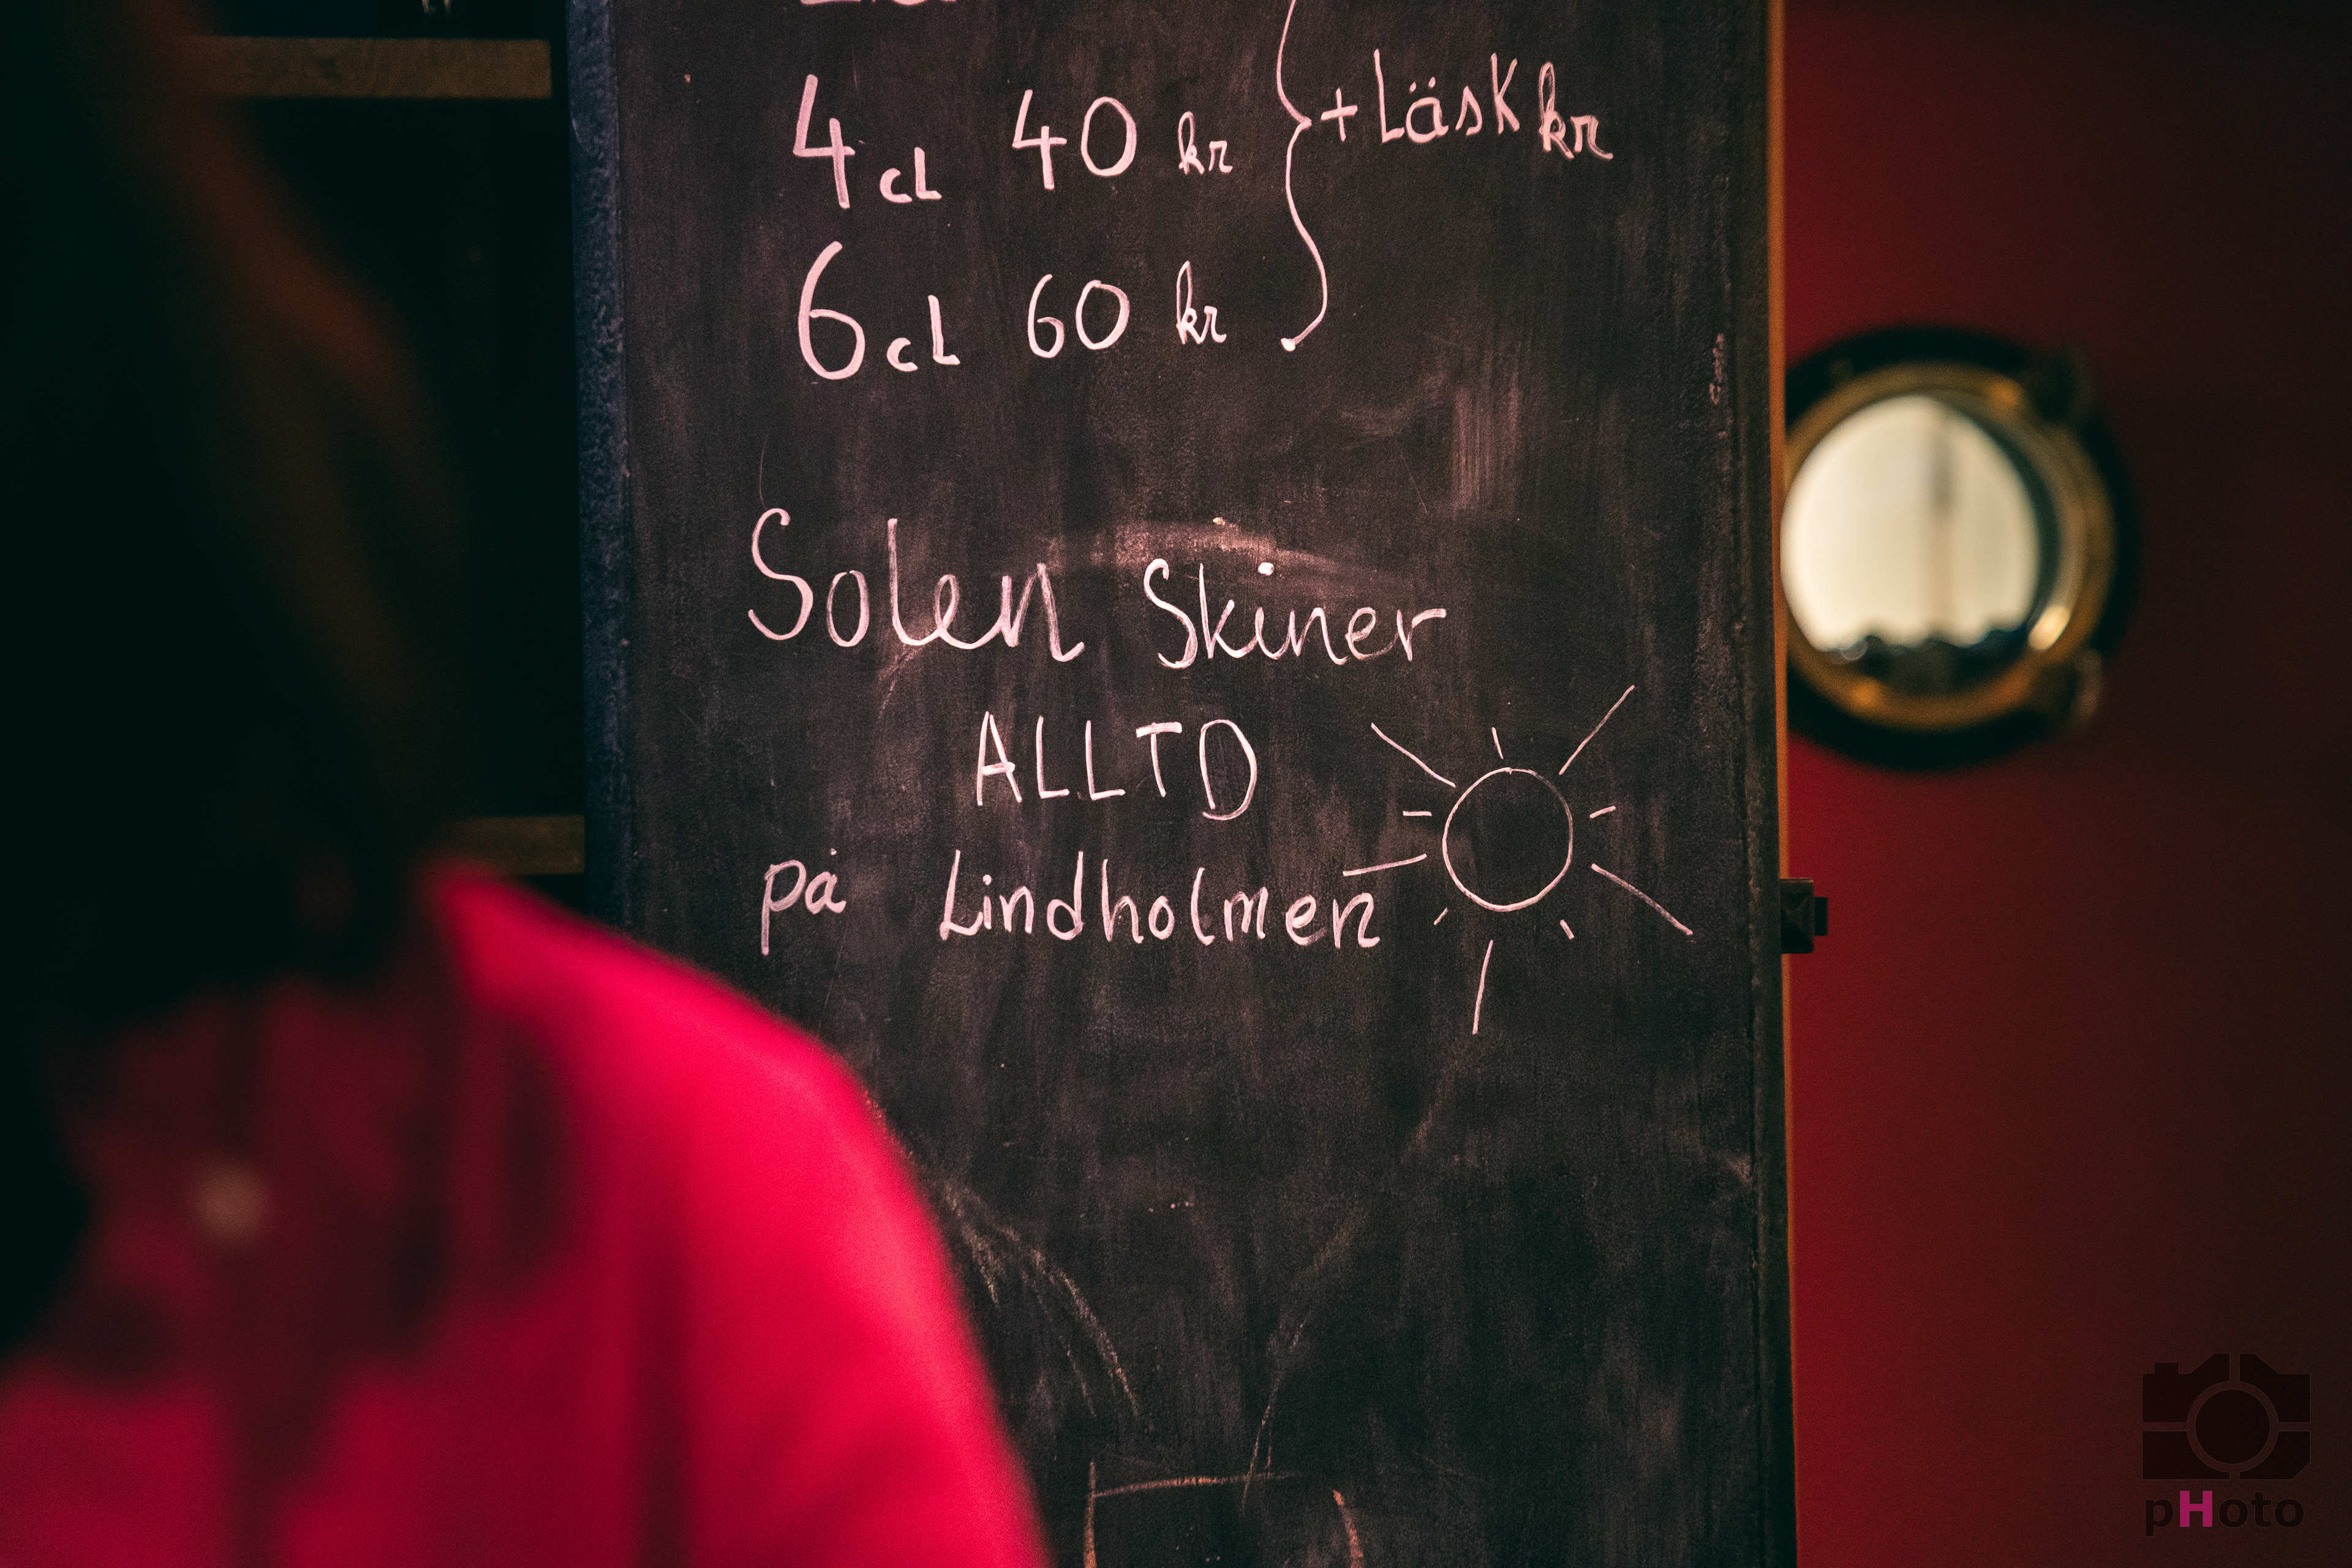 4cl 40 kr + Läsk kr
6cl 60 kr
Solen Skiner
ALLTD
på Lindholmen
pHoto